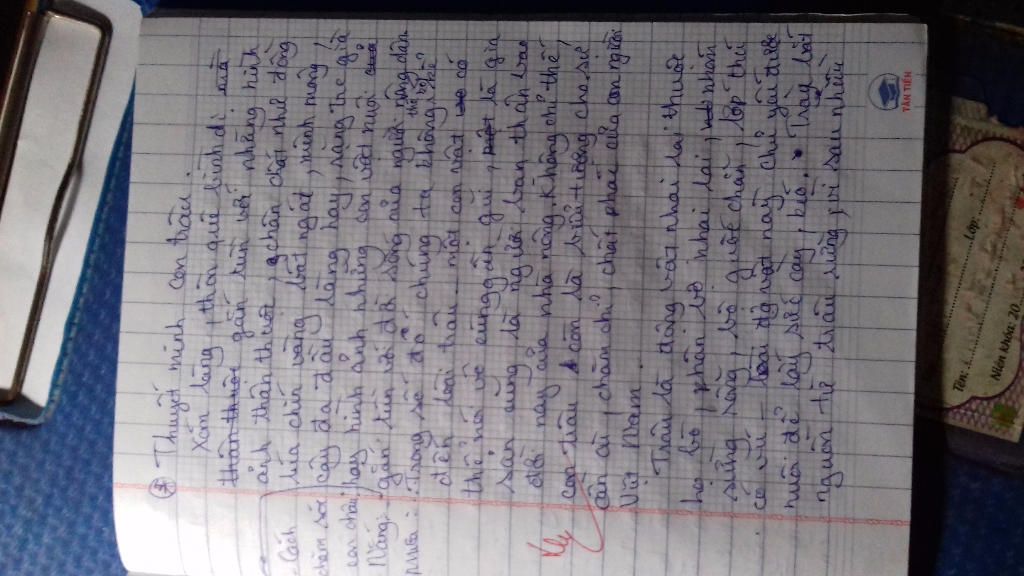 * Thuyết minh con trâu.
Xóm làng, thôn quê bình dị mà
thân thuộc gắn liền với những hình
ảnh thân thuộc, chân chất như đồng
lúa chín vàng bát ngát, mênh mông,
cây đa đầu làng hay, sáng tre già
hay hình ảnh những con vật nuôi
gắn liền với đời sống của người nông dân
Trong số đó chúng ta không thể không kể
đến loài trâu - một con vật có
thể nói vô cùng gần gũi, là gia
sản cũng là người bạn thân bao
đời nay của nhà nông. Không chỉ thế
con trâu còn là biểu tượng cho sự
cần cù, chăm chỉ, chất phác của con người
Việt Nam.
Trâu là động vật nhai lại thuộc
họ bò, phân bộ nhai lại, nhóm
sừng rỗng, bộ guốc chẵn, lớp thú
có vú - loài động vật này chủ yếu được
nuôi để lấy sức cày, kéo. Trâu bắt
nguồn từ trâu rừng, vì sau nhiều
Cách
chăm sóc
cái chài
Nặng
phiếu:
TÂN TIẾN
Tên:
Lớp
Niên khóa: 20